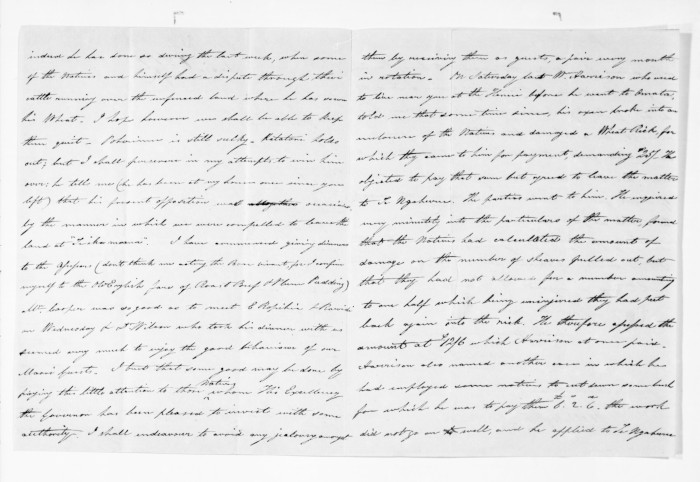 indeed he has done so during the last week, when some
of the Natives and himself had a dispute through their
cattle running over the unfenced land where he has sown
his Wheat. I hope however we shall be able to keep
them quiet. is still sulky. holds
out; but I shall persevere in my attempts to win him
over: he tells me (he has been at my house once since you
left) that his present opposition was occasioned
by the manner in which we were compelled to leave the
land at I have commenced giving dinners
to the Assessors (don't think me acting the here for I confine
myself to the Old English fare of Roast Beef & Plum Pudding)
Mr. Cooper was so good as to meet &
on Wednesday & Dr Wilson who took his dinner with us
seemed very much to enjoy the good behaviour of our
Maori guests. I trust that some good may be done by
paying this little attention to those Natives whom His Excellency
the Governor has been pleased to invest with some
authority. I shall endeavour to avoid any jealousy amongst
them by receiving them as guests, a pair every month
in rotation. On Saturday last Mr. Harrison who used
to live near you at the before he went to
told me that some time since, his oxen broke into an
enclosure of the Natives and damaged a Wheat Rick for
which they came to him for payment, demanding He
objected to pay that sum but agreed to leave the matter
to Te Ngahuru. The parties went to him. He inquired
very minutely into the particulars of the matter, found
that the Natives had calculated the amount of
damage on the number of sheaves pulled out, but
that they had not allowed for a number amounting
to one half which being uninjured they had put
back again into the rick. He therefore assessed the
amount at 12/6 which Harrison at once paid.
Harrison also named another case in which he
had employed some natives to cut down some bush
for which he was to pay them the work
did not go on well, and he applied to Te Ngahuru